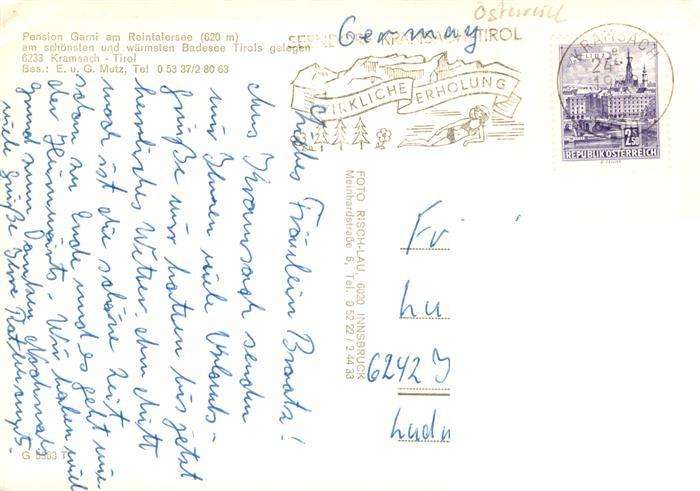 Pension Garni am Reintalersee (620 m)
am schönsten und wärmsten Badesee Tirols gelegen
6233 Kramsach - Tirol
Bes.: E. u. G. Mutz, Tel 0 53 37/2 80 63
Germany
Österreich
KRAMSACH TIROL
WIRKLICHE ERHOLUNG
KRAMSACH
24
2.50
REPUBLIK ÖSTERREICH
Liebes Fräulein Braatz!
Aus Kramsach senden
wir Ihnen viele Urlaubs-
grüße wir hatten bis jetzt
herrliches Wetter.
noch ist die schöne Zeit
schon zu Ende und es geht wie
der Heimwärts. Wir haben viel
grund zum Danken Nochmals
viele Grüße Ihre
FOTO RISCH-LAU, 6020 INNSBRUCK
Meinhardstraße 5, Tel. 0 52 22 / 2 44 33
Fr
Lu
6242 J
Ludu
G 5503 T